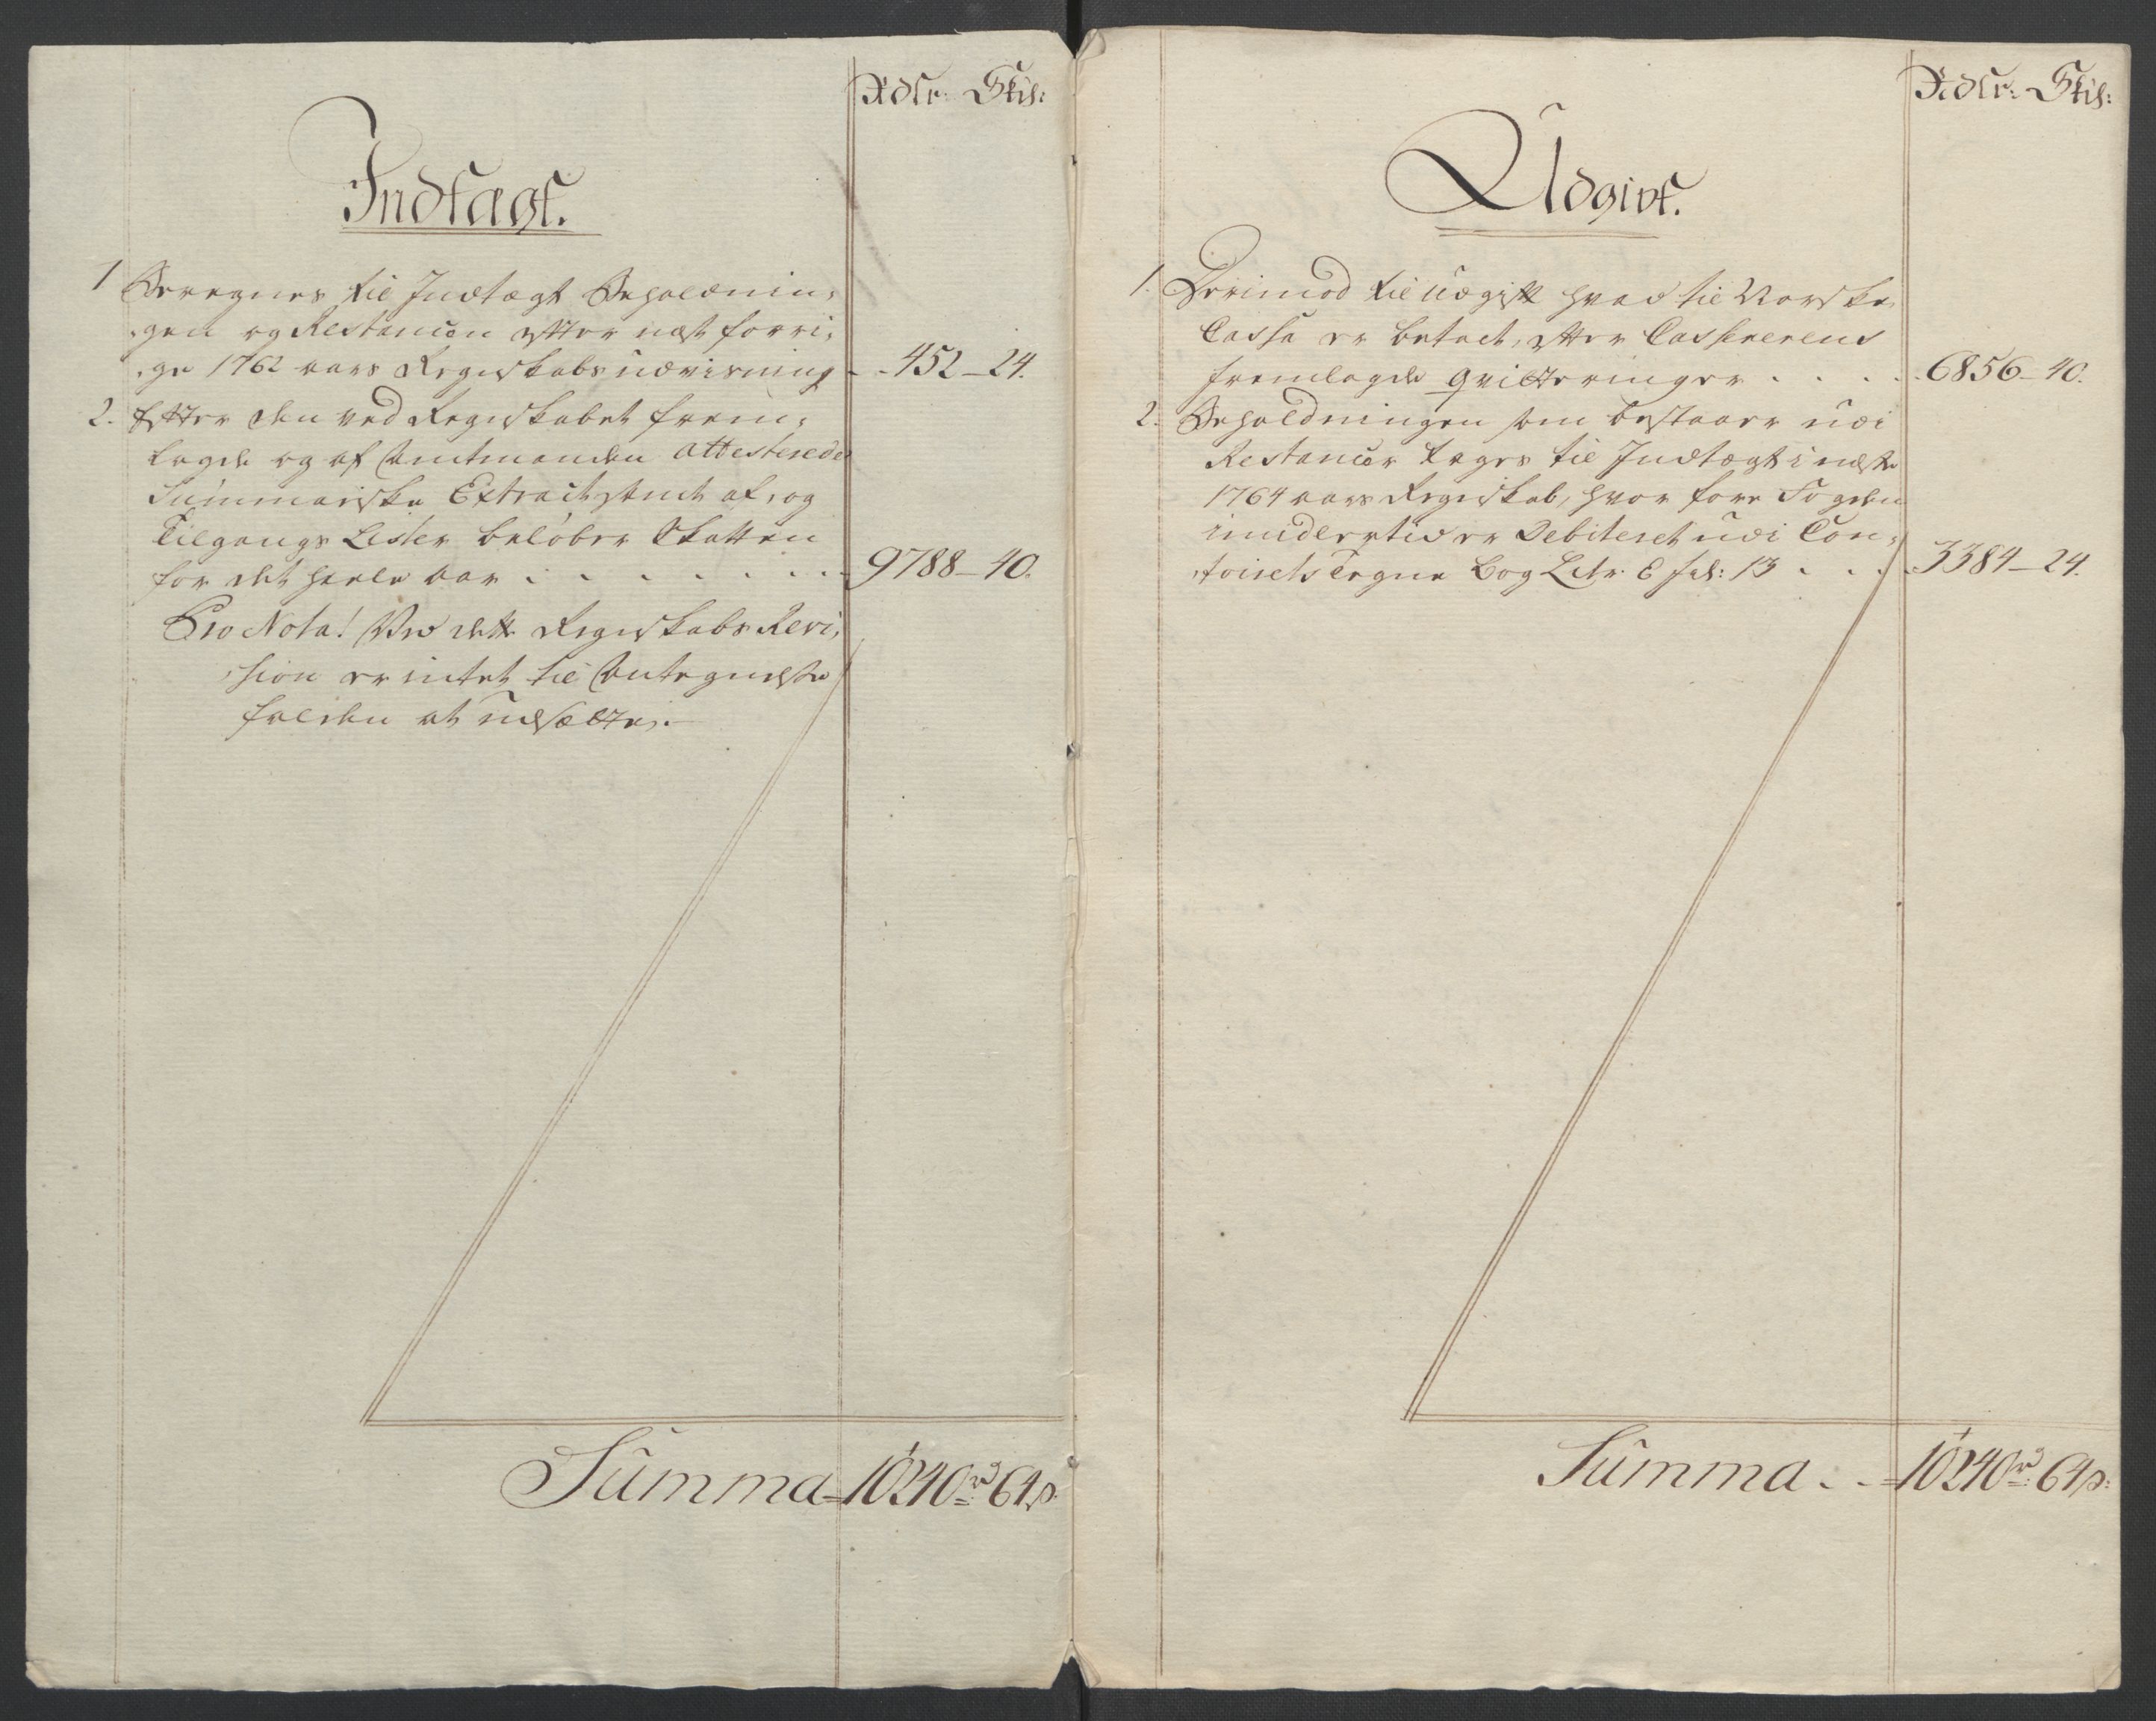 Rdlr: Skil:
Indtægt.
1 Beregnes til Indtægt Beholdnin,
,gen og Restancen efter næst forri,
,ge 1762 aars Regnskabs udvisning - - 452 - 24.
2. Efter den ved Regnskabet frem,
lagde og af Amtmanden attesterede
Summariske Extract samt af, og
Tilgangs Lister beløber Skatten
for det heele aar . . . . . . . 9788 - 40.
Pro Nota! Ved dette Regnskabs Revi,
,sion er intet til Antegnelse
falden at udsætte.
Summa = 10240 rd 64 s:
Rdlr: Skil:
Udgivt.
1. Derimod til udgift hvad til Norske
Cassa er betalt, efter Casserernes
fremlagde Qvitteringer . . . . 6856 - 40.
2. Beholdningen som bestaaer udi
Restancer tages til Indtægt i næste
1764 aars Regnskab, hvor fore Fogden
imidlertid er Debiteret udi Con,
,toirets Tegne Bog Litr: E fol: 13 . . . 3384 - 24.
Summa . . = 10240 rd 64 s: